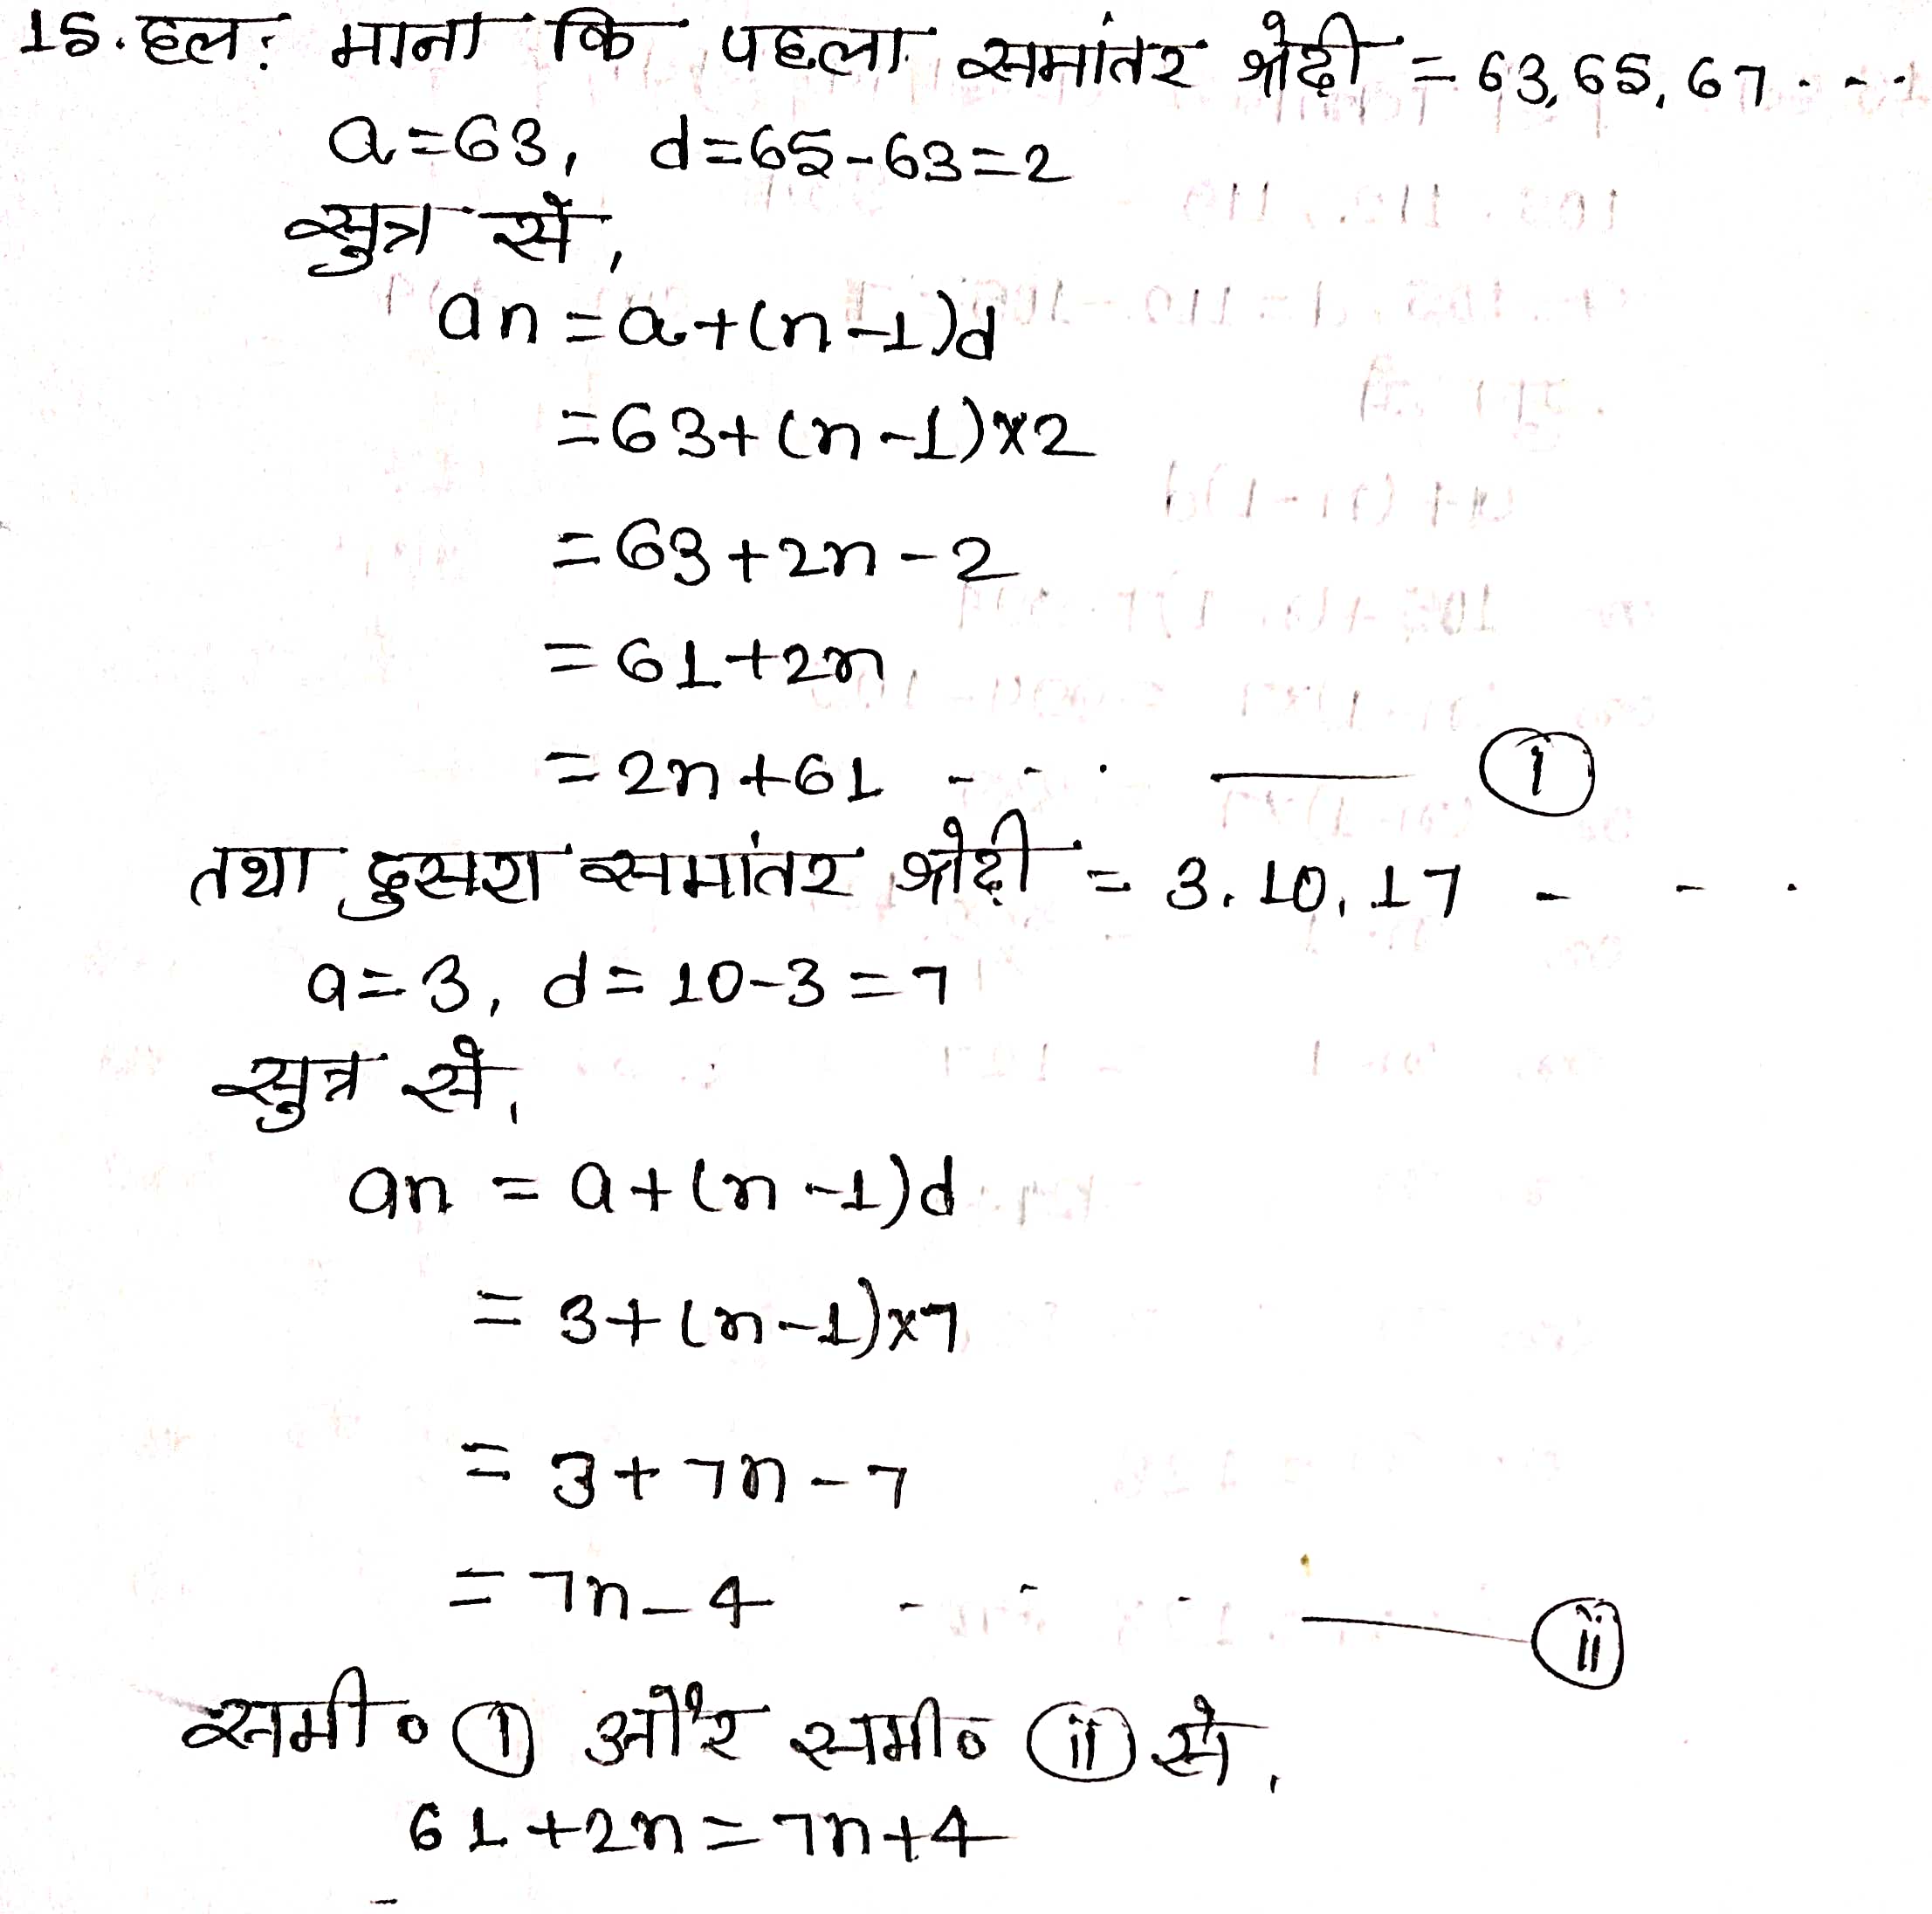 15. हल: माना कि पहला समांतर श्रेढ़ी = 63, 65, 67 . - - .
a = 63, d = 65 - 63 = 2
सुत्र से,
an = a + (n - 1)d
= 63 + (n - 1) × 2
= 63 + 2n - 2
= 61 + 2n
= 2n + 61 - - . —— (i)
तथा दुसरा समांतर श्रेढ़ी = 3, 10, 17 - - .
a = 3, d = 10 - 3 = 7
सुत्र से,
an = a + (n - 1)d
= 3 + (n - 1) × 7
= 3 + 7n - 7
= 7n - 4 - - - —— (ii)
समी० (i) और समी० (ii) से,
61 + 2n = 7n + 4